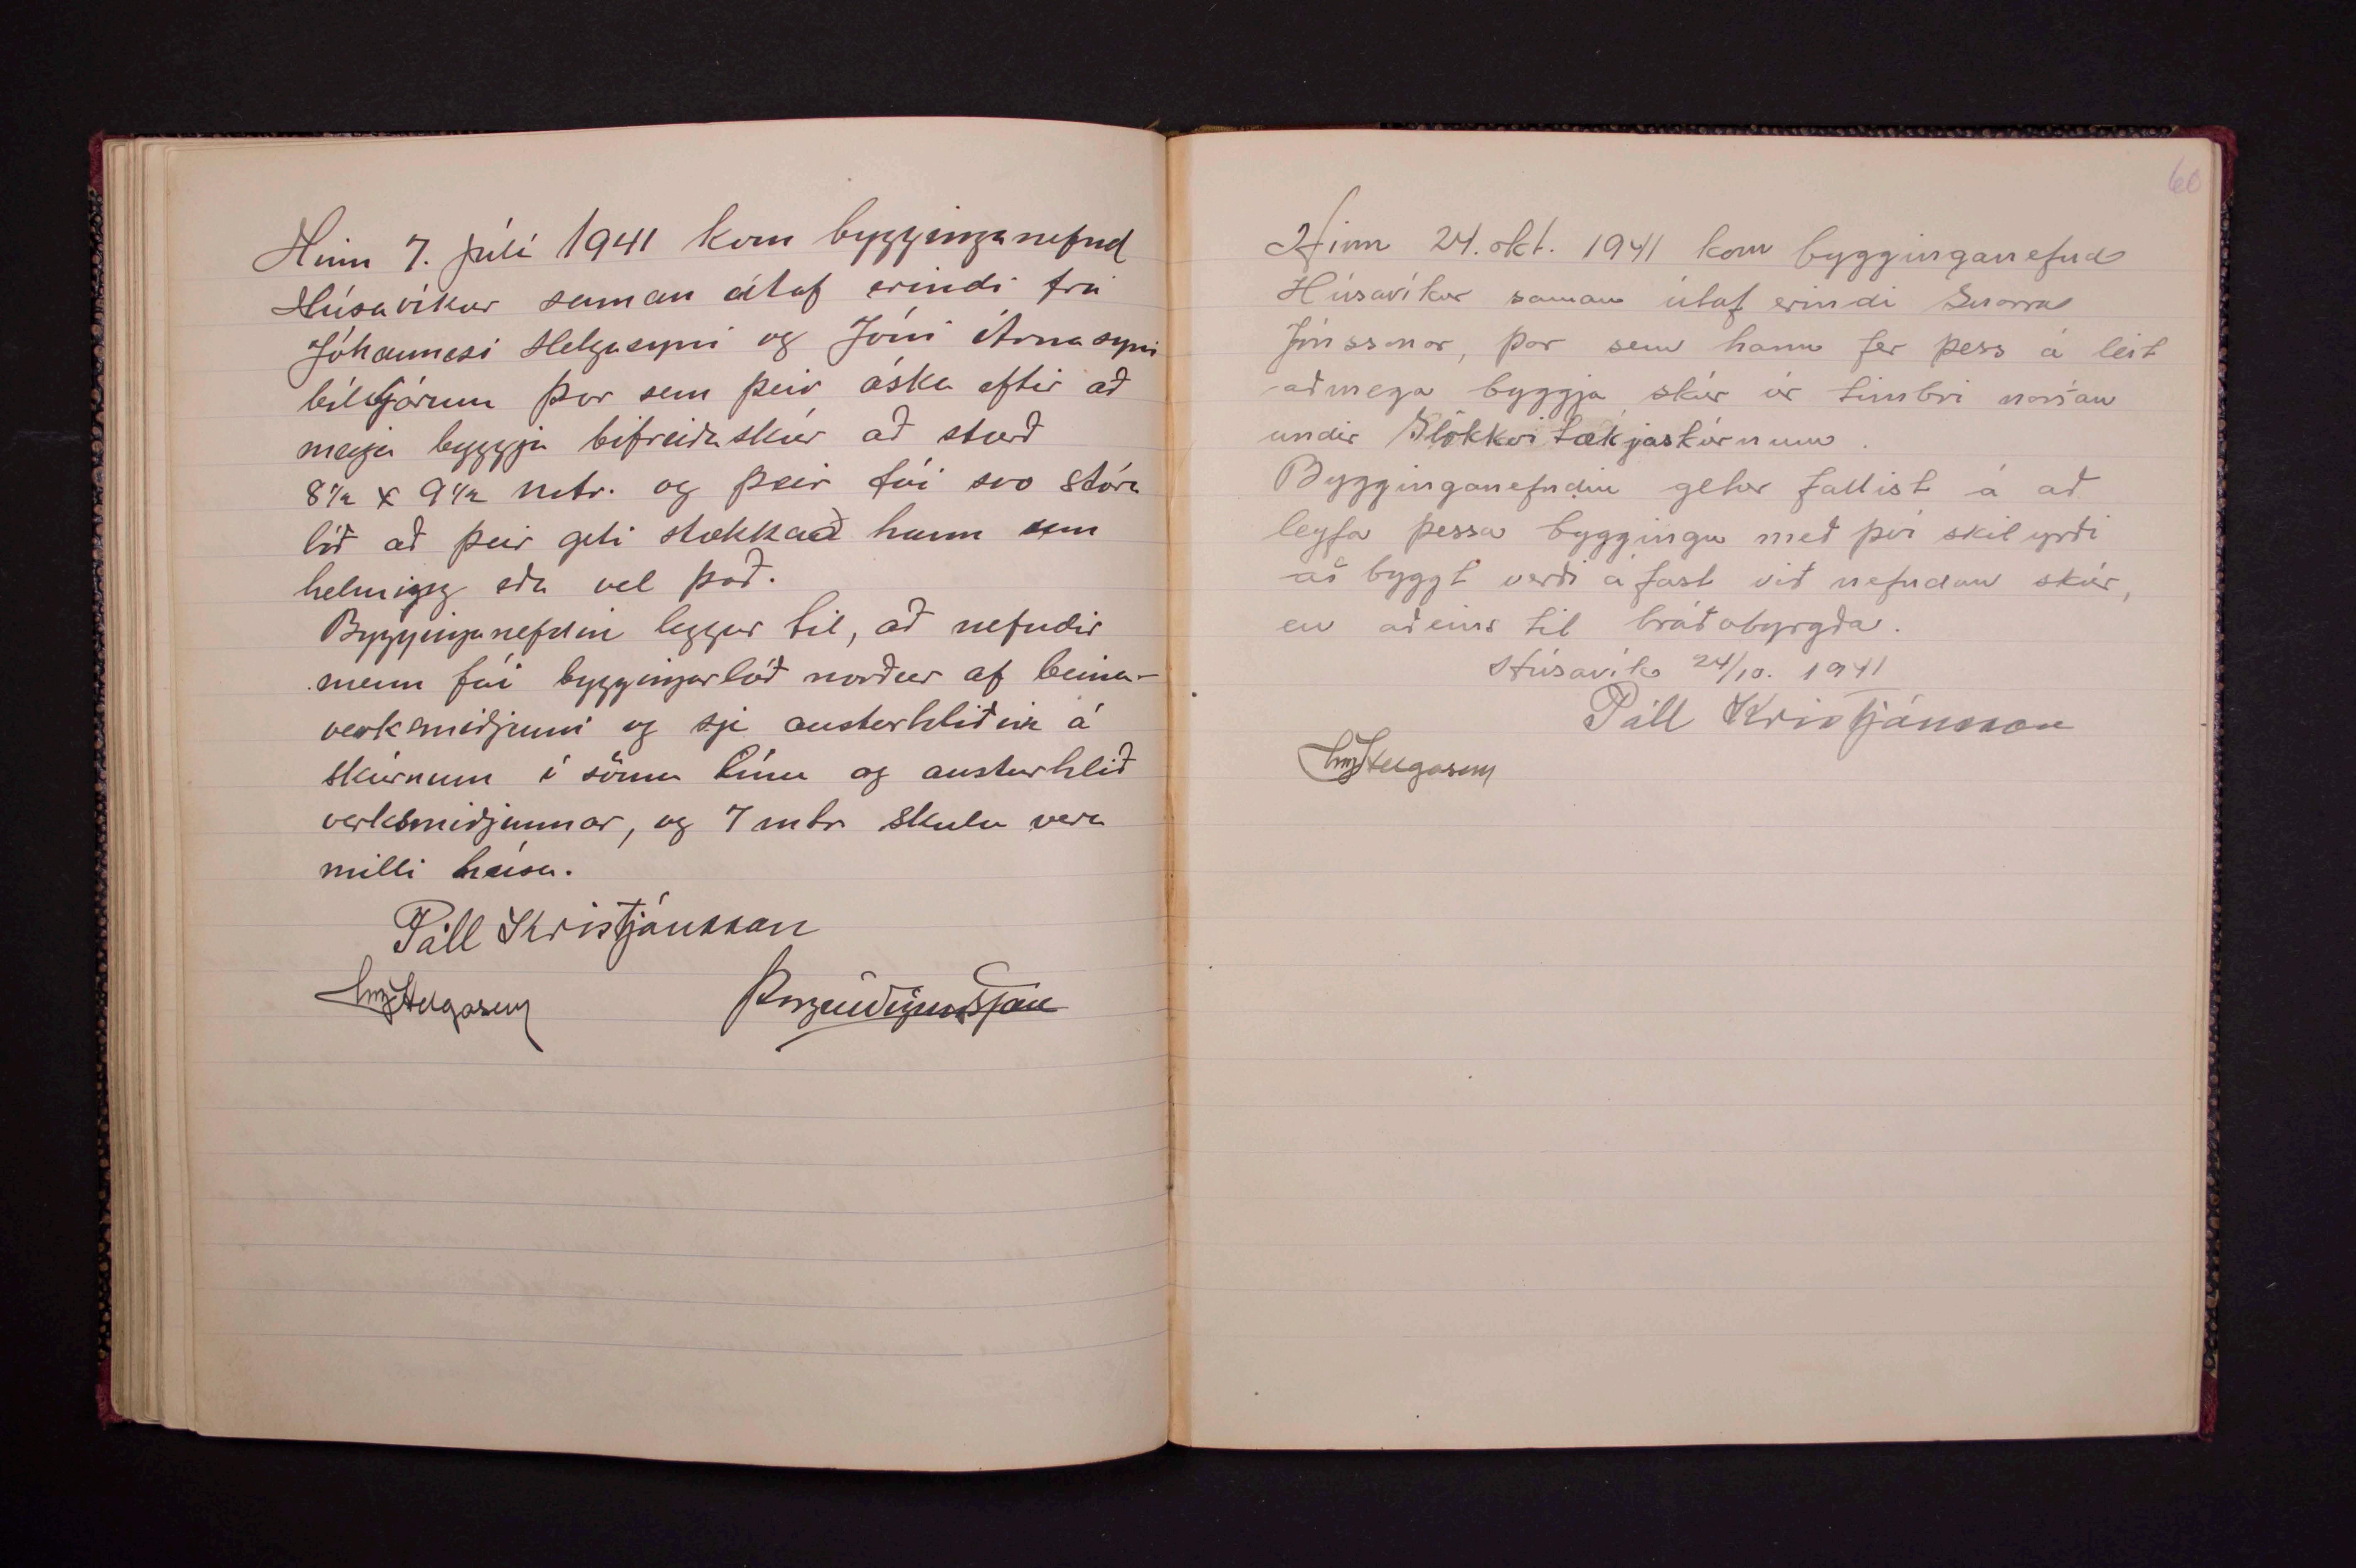 Hinn 7. júlí 1941 kom bygginganefnd
Húsavíkur saman útaf erindi frá
Jóhannesi Helgasyni og Jóni Árnasyni
bílstjórum þar sem þeir óska eftir að
mega byggja bifreiðaskúr að stærð
8½ x 9½ mtr. og þeir fái svo stóra
lóð að þeir geti stækkað hann um
helming eða vel það.
Bygginganefndin leggur til, að nefndir
menn fái byggingarlóð norður af beina-
verksmiðjunni og sje austurhliðin á
skúrnum í sömu línu og austurhlið
verksmiðjunnar, og 7 mtr skulu vera
milli húsa.
Páll Kristjánsson
Helgason
60
Hinn 24. okt. 1941 kom bygginganefnd
Húsavíkur saman útaf erindi Snorra
Jónssonar, þar sem hann fer þess á leit
að mega byggja skúr úr timbri norðan
undir Slökkvitækjaskúrnum.
Bygginganefndin getur fallist á að
leyfa þessa byggingu með því skilyrði
að byggt verði áfast við nefndan skúr,
en aðeins til bráðabyrgða.
Húsavík 24/10. 1941
Páll Kristjánsson
Helgason